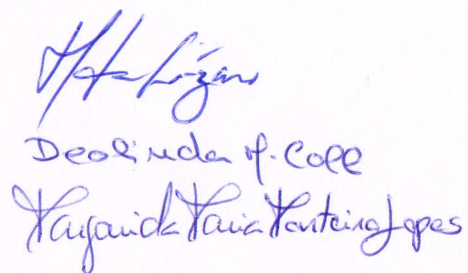 Deolinda M. Coll
Margarida Maria Monteiro Lopes